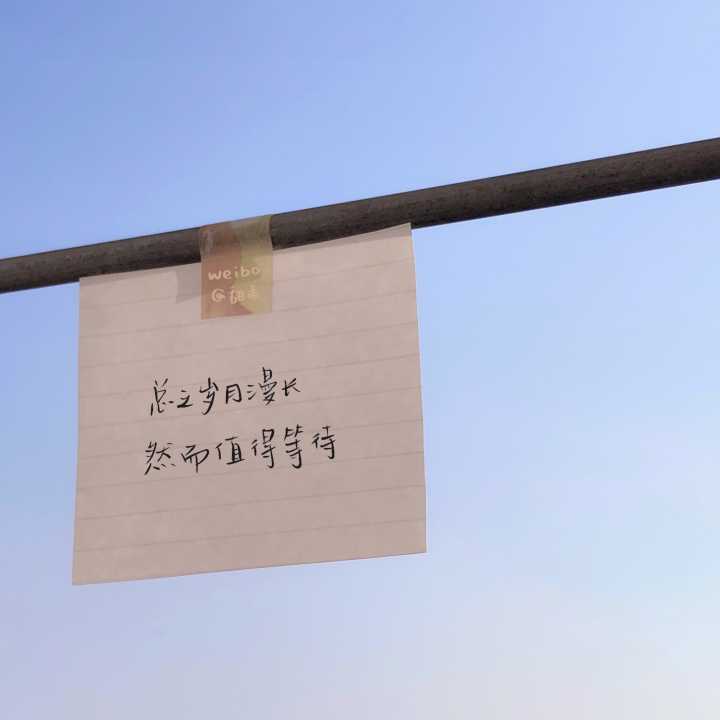 weibo
总之岁月漫长
然而值得等待